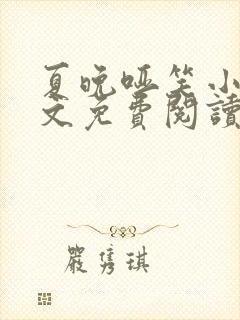 夏晚哑笑小
文免費閱讀
嚴隽琪